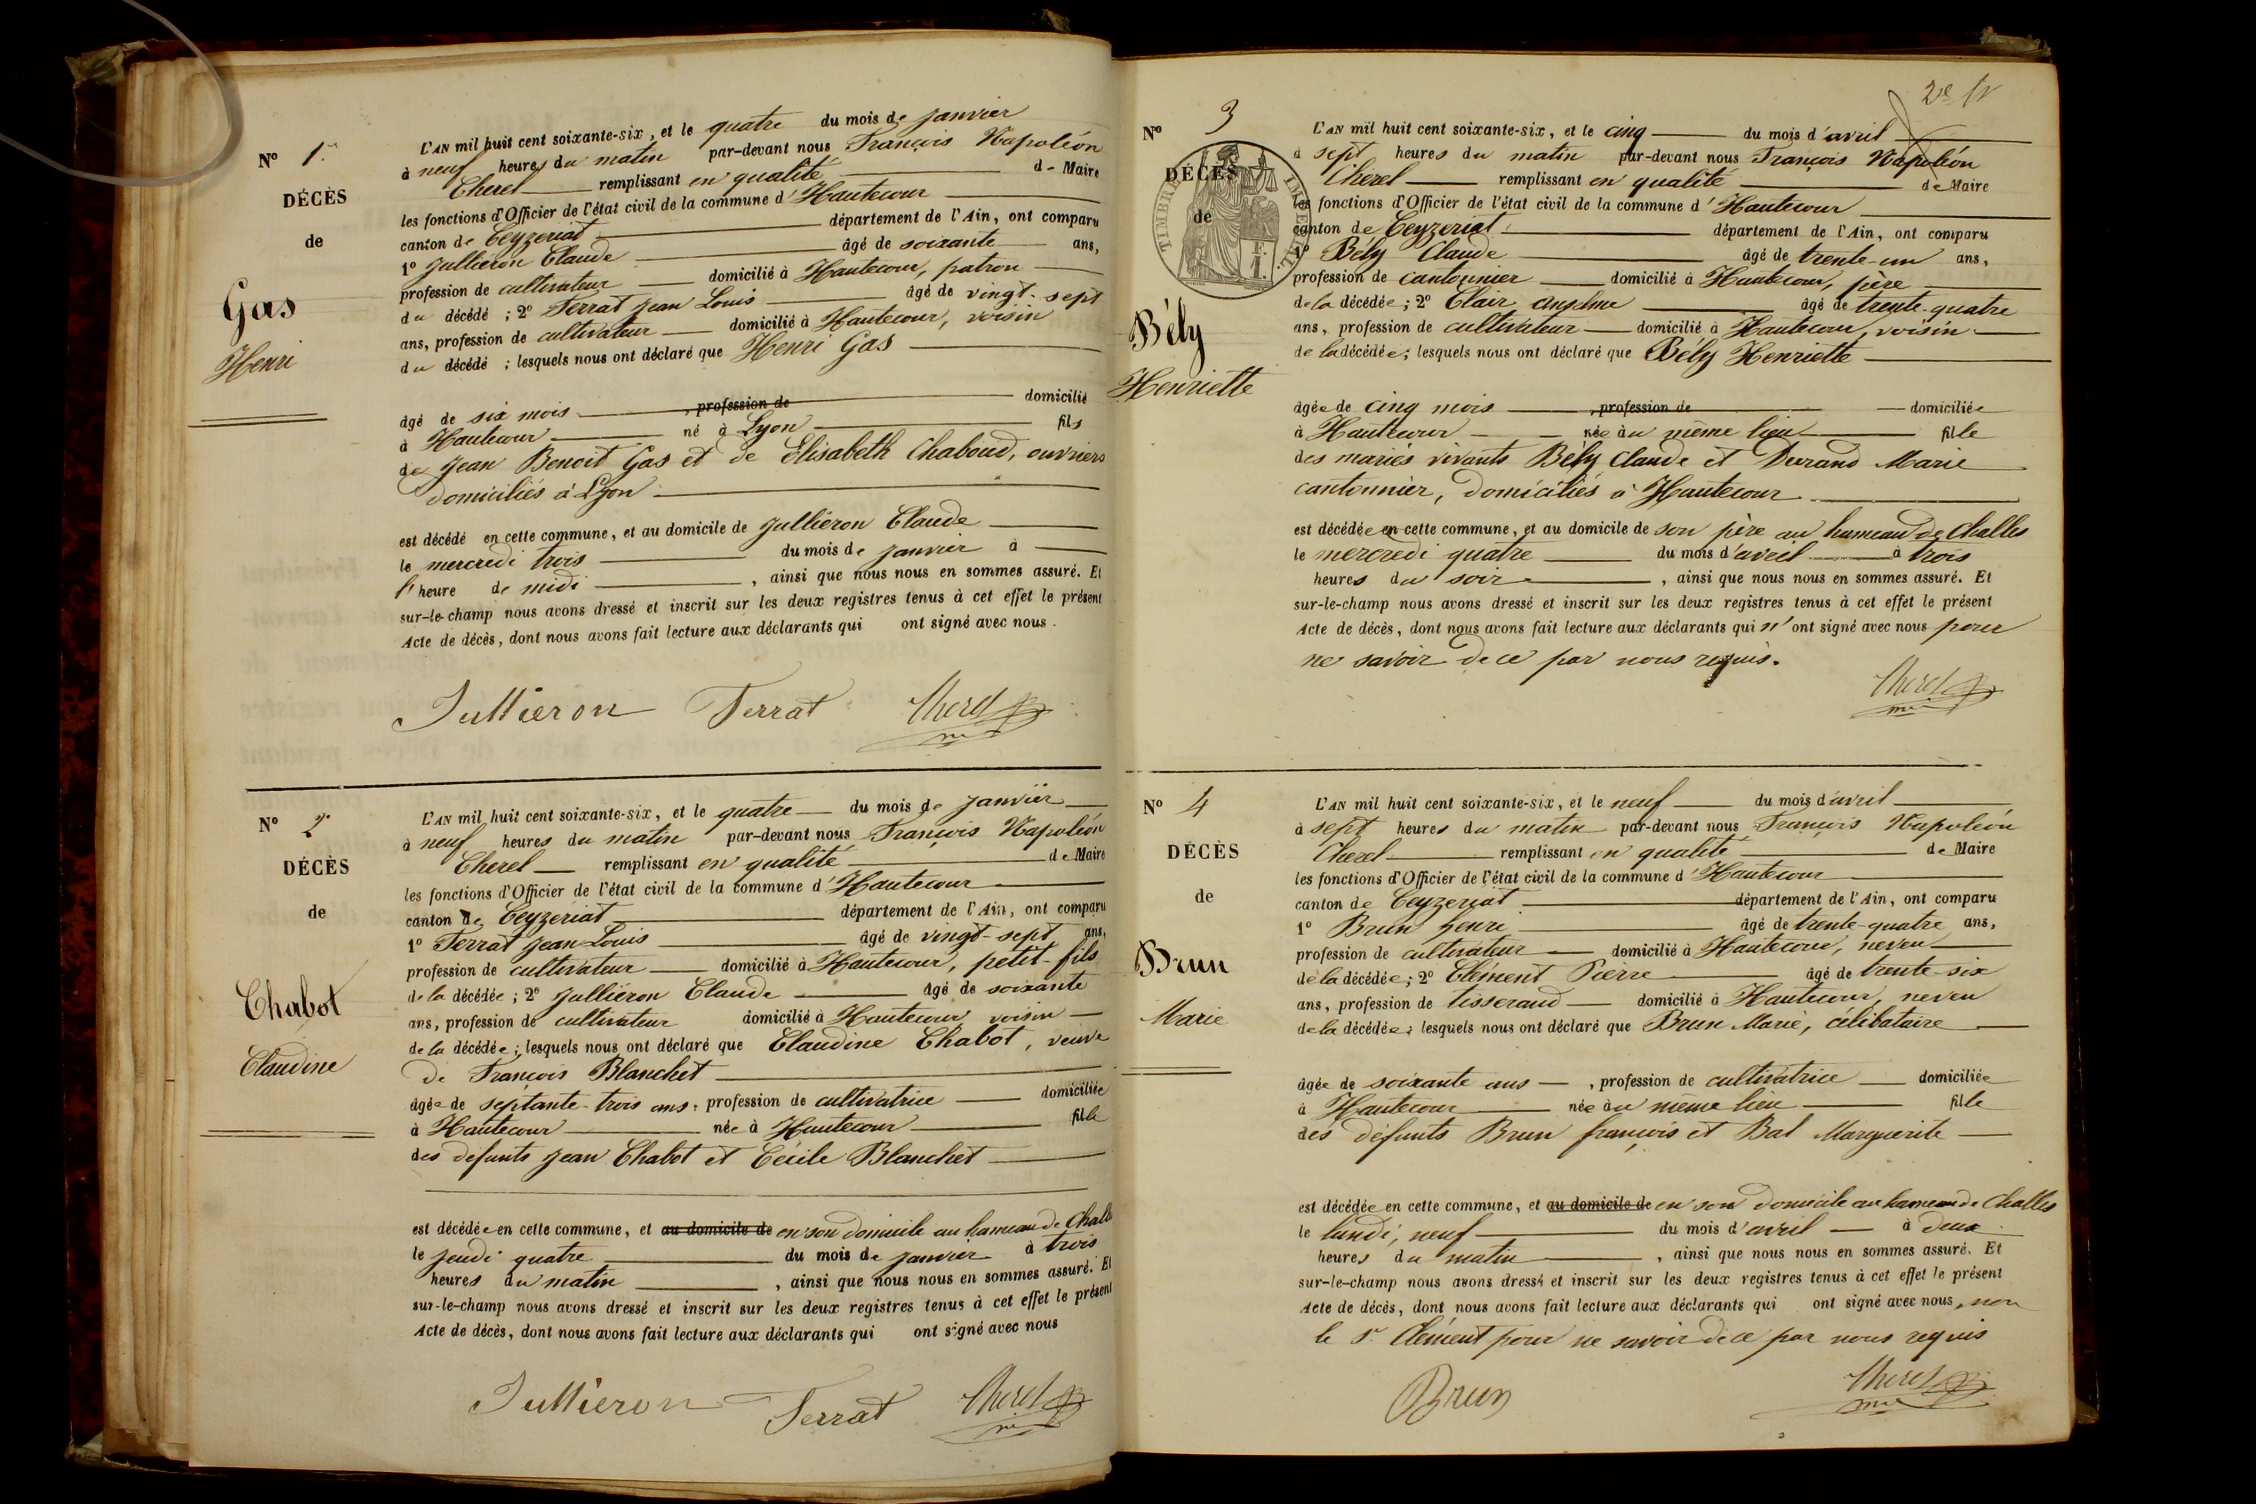 N° 1er
DÉCÈS
de
Gas
Henri
L'AN mil huit cent soixante-six, et le quatre du mois de janvier
à neuf heures du matin par-devant nous François Napoléon
Cherel remplissant en qualité de Maire
les fonctions d'Officier de l'état civil de la commune d'Hautecour
canton de Ceyzeriat département de l'Ain, ont comparu
1° Jullieron Claude âgé de soixante ans,
profession de cultivateur domicilié à Hautecour, patron
du décédé ; 2° Ferrat Jean Louis âgé de vingt-sept
ans, profession de cultivateur domicilié à Hautecour, voisin
du décédé ; lesquels nous ont déclaré que Henri Gas
âgé de six mois , profession de domicilié
à Hautecour né à Lyon fils
de Jean Benoit Gas et de Elisabeth Chaboud, ouvriers
domiciliés à Lyon
est décédé en cette commune, et au domicile de Julliéron Claude
le mercredi trois du mois de janvier à
l'heure de midi , ainsi que nous nous en sommes assuré. Et
sur-le-champ nous avons dressé et inscrit sur les deux registres tenus à cet effet le présent
Acte de décès, dont nous avons fait lecture aux déclarants qui ont signé avec nous.
Jullieron Ferrat Cherel
N° 2
DÉCÈS
de
Chabot
Claudine
L'AN mil huit cent soixante-six, et le quatre du mois de janvier
à neuf heures du matin par-devant nous François Napoléon
Cherel remplissant en qualité de Maire
les fonctions d'Officier de l'état civil de la commune d'Hautecour
canton de Ceyzeriat département de l'Ain, ont comparu
1° Ferrat Jean-Louis âgé de vingt-sept ans,
profession de cultivateur domicilié à Hautecour, petit-fils
de la décédée ; 2° Julliéron Claude âgé de soixante
ans, profession de cultivateur domicilié à Hautecour voisin
de la décédée ; lesquels nous ont déclaré que Claudine Chabot, veuve
de François Blanchet
âgée de septante-trois ans, profession de cultivatrice domiciliée
à Hautecour née à Hautecour fille
des défunts Jean Chabot et Cécile Blanchet
est décédée en cette commune, et au domicile de en son domicile au hameau de Challes
le jeudi quatre du mois de janvier à trois
heures du matin , ainsi que nous nous en sommes assuré. Et
sur-le-champ nous avons dressé et inscrit sur les deux registres tenus à cet effet le présent
Acte de décès, dont nous avons fait lecture aux déclarants qui ont signé avec nous
Jullieron Ferrat Cherel
N° 3
DÉCÈS
de
TIMBRE IMPÉRIAL
Bély
Henriette
L'AN mil huit cent soixante-six, et le cinq du mois d'avril
à sept heures du matin par-devant nous François Napoléon
Cherel remplissant en qualité de Maire
les fonctions d'Officier de l'état civil de la commune d'Hautecour
canton de Ceyzeriat département de l'Ain, ont comparu
1° Bély Claude âgé de trente-un ans,
profession de cantonnier domicilié à Hautecour, père
de la décédée ; 2° Clair Anselme âgé de trente-quatre
ans, profession de cultivateur domicilié à Hautecour, voisin
de la décédée ; lesquels nous ont déclaré que Bély Henriette
âgée de cinq mois , profession de domiciliée
à Hautecour née au même lieu fille
des mariés vivants Bély Claude et Durand Marie
cantonnier, domiciliés à Hautecour
est décédée en cette commune, et au domicile de son père au hameau de Challes
le mercredi quatre du mois d'avril à trois
heures du soir , ainsi que nous nous en sommes assuré. Et
sur-le-champ nous avons dressé et inscrit sur les deux registres tenus à cet effet le présent
Acte de décès, dont nous avons fait lecture aux déclarants qui n'ont signé avec nous pour
ne savoir de ce par nous requis.
Cherel
N° 4
DÉCÈS
de
Brun
Marie
L'AN mil huit cent soixante-six, et le neuf du mois d'avril
à sept heures du matin par-devant nous François Napoléon
Cherel remplissant en qualité de Maire
les fonctions d'Officier de l'état civil de la commune d'Hautecour
canton de Ceyzeriat département de l'Ain, ont comparu
1° Brun henri âgé de trente-quatre ans,
profession de cultivateur domicilié à Hautecour, neveu
de la décédée ; 2° Clément Pierre âgé de trente-six
ans, profession de tisserand domicilié à Hautecour, neveu
de la décédée ; lesquels nous ont déclaré que Brun Marie, célibataire
âgée de soixante ans , profession de cultivatrice domiciliée
à Hautecour née au même lieu fille
des défunts Brun françois et Bal Marguerite
est décédée en cette commune, et au domicile de en son domicile au hameau de Challes
le lundi, neuf du mois d'avril à deux
heures du matin , ainsi que nous nous en sommes assuré. Et
sur-le-champ nous avons dressé et inscrit sur les deux registres tenus à cet effet le présent
Acte de décès, dont nous avons fait lecture aux déclarants qui ont signé avec nous, non
le Sr Clément pour ne savoir de ce par nous requis
Brun Cherel